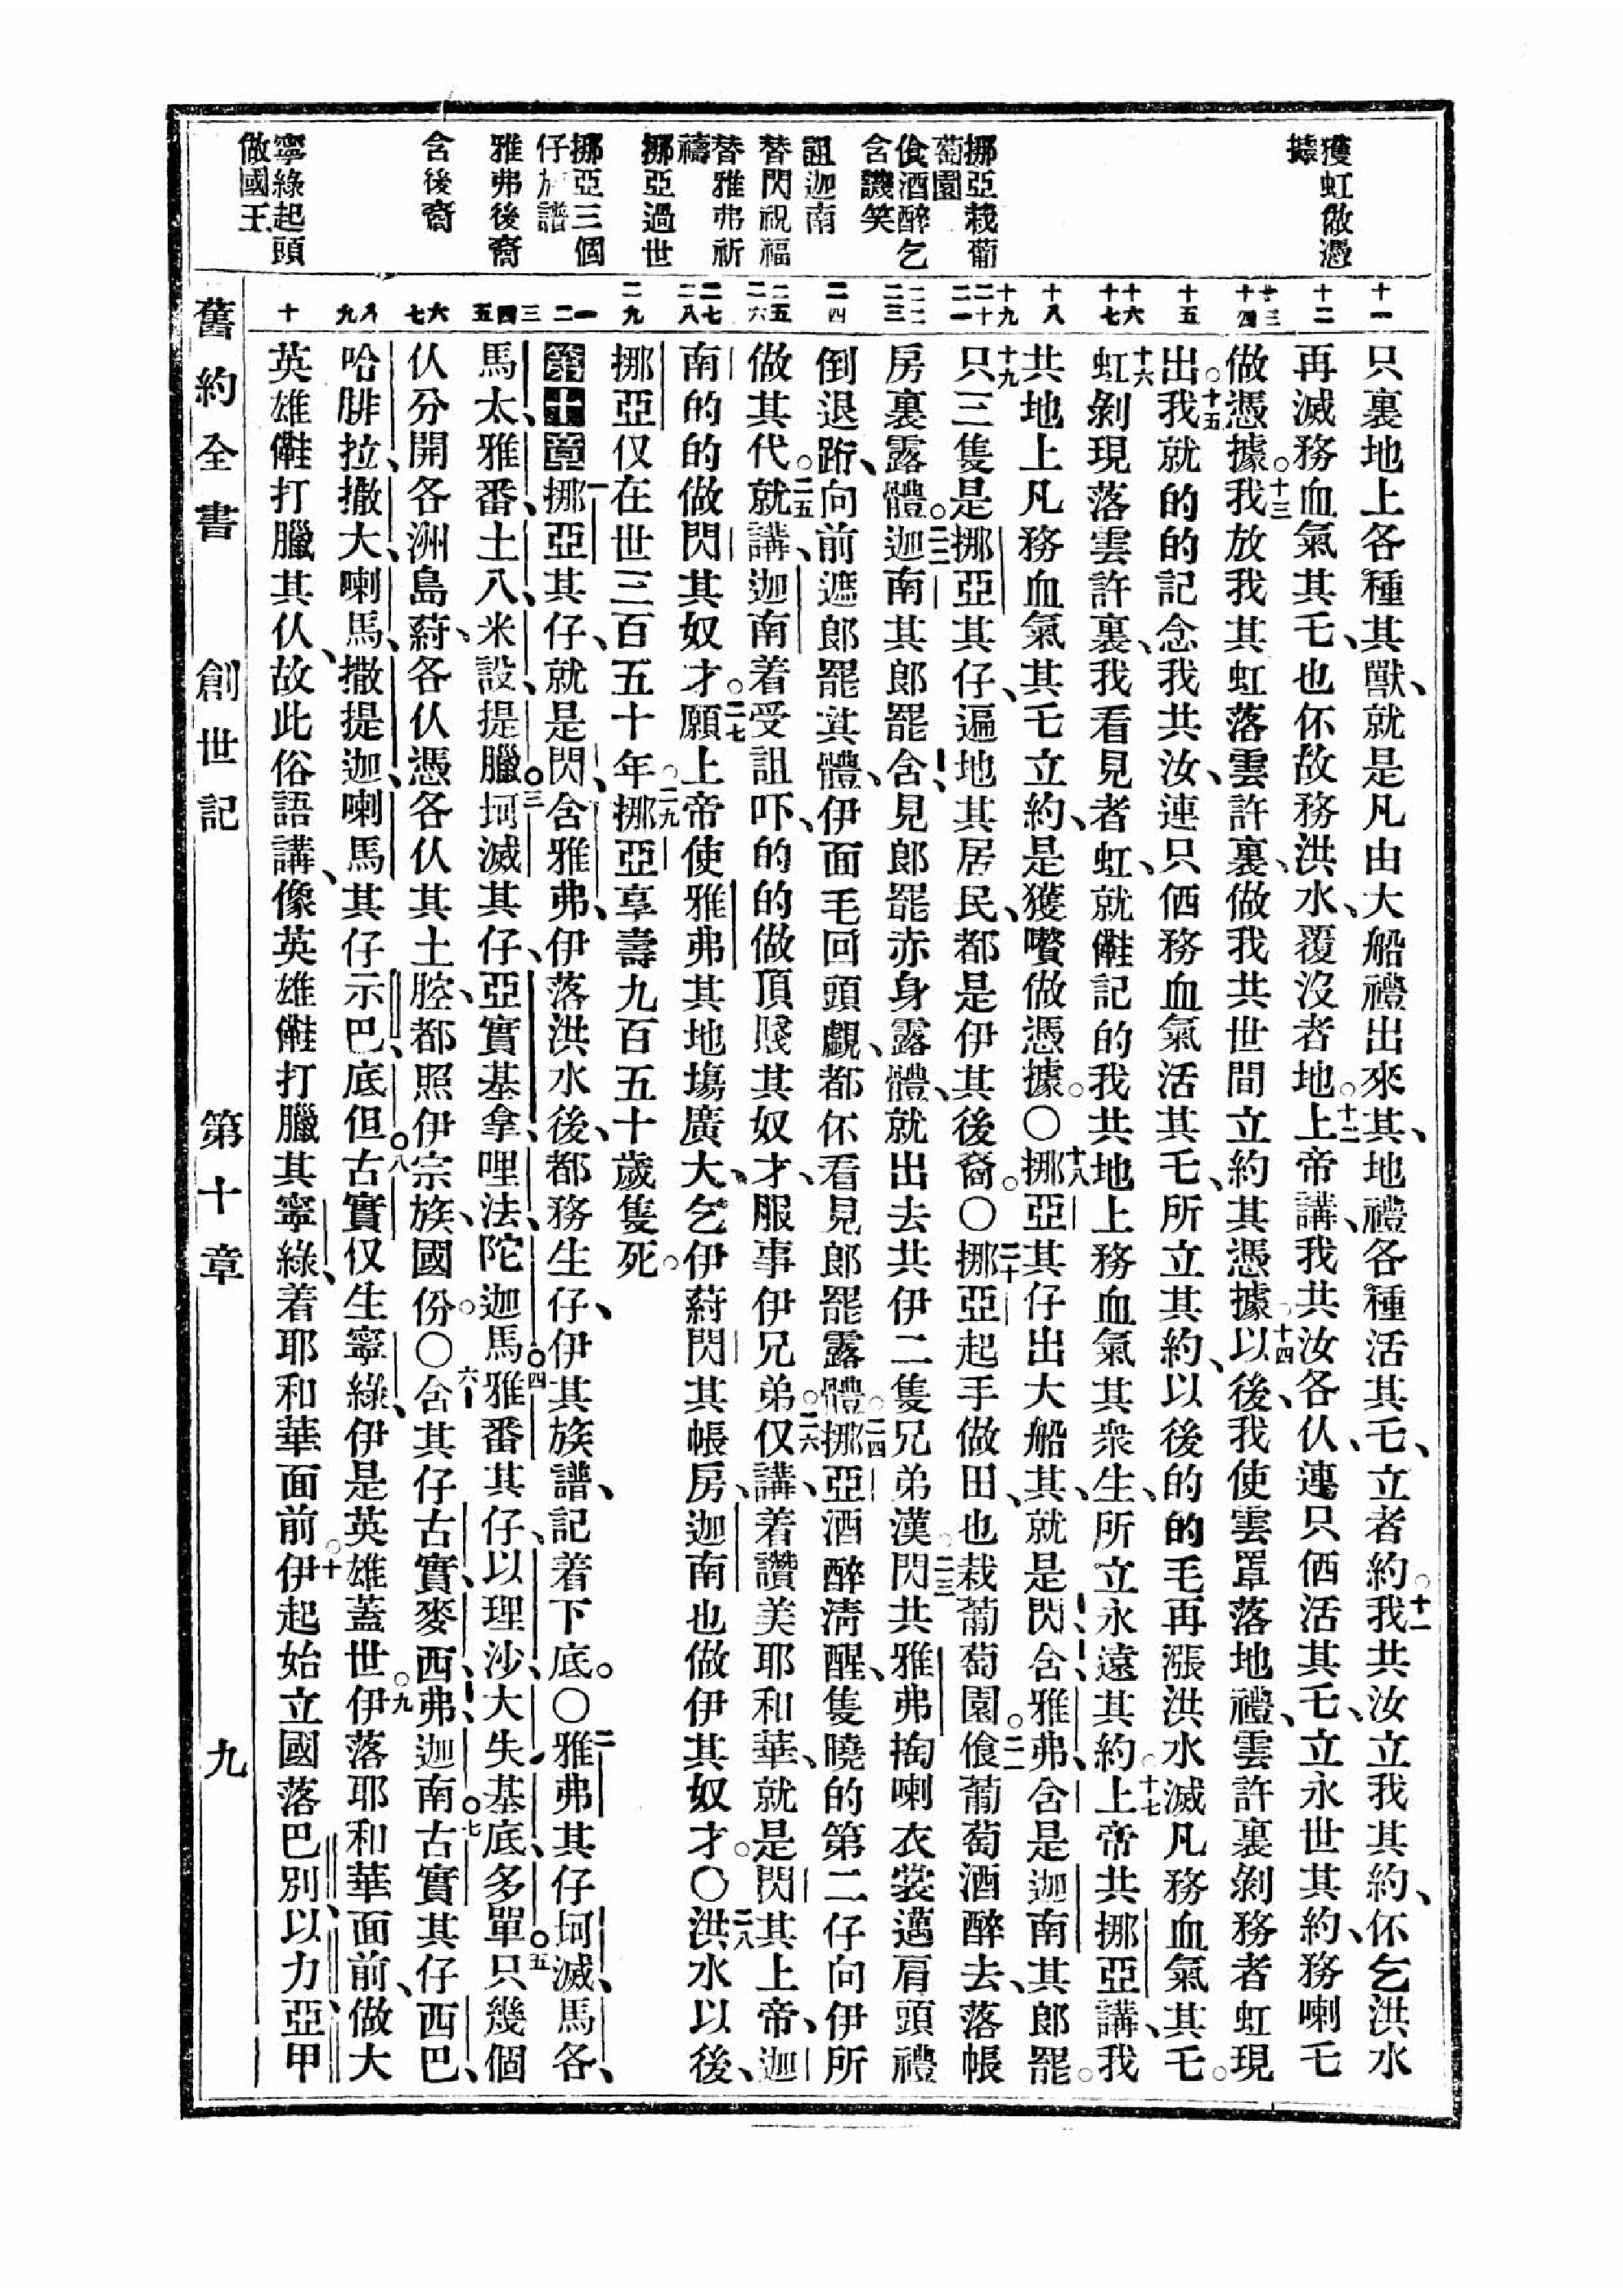 獲虹做憑
據
挪亞栽葡
萄園
飲酒醉乞
含譏笑
詛迦南
替閃祝福
替雅弗祈
禱
挪亞過世
挪亞三個
仔族譜
雅弗後裔
含後裔
寧綠起頭
做國王
十一
十二
十三
十四
十五
十六
十七
十八
十九
二十
二一
二二
二三
二四
二五
二六
二七
二八
二九
一
二
三
四
五
六
七
八
九
十
只裏地上各種其獸、就是凡由大船禮出來其、地禮各種活其乇、立者約。十一我共汝立我其約、伓乞洪水
再滅務血氣其乇、也伓故務洪水、覆沒者地。十二上帝講、我共汝各仈、連只価活其乇、立永世其約、務喇乇
做憑據。十三我放我其虹落雲許裏、做我共世間立約其憑據。十四以後、我使雲罩落地禮、雲許裏剝務者虹現
出。十五我就的的記念我共汝、連只価務血氣活其乇、所立其約、以後的的毛再漲洪水滅凡務血氣其乇。
十六虹剝現落雲許裏、我看見者虹、就儺記的我共地上務血氣其衆生、所立永遠其約。十七上帝共挪亞講、我
共地上凡務血氣其乇立約、是獲囋做憑據。〇十八挪亞其仔出大船其、就是閃、含、雅弗、含是迦南其郎罷。
十九只三隻是挪亞其仔、遍地其居民、都是伊其後裔。〇二十挪亞起手做田、也栽葡萄園。二一飲葡萄酒醉去、落帳
房裏露體。二二迦南其郎罷含、見郎罷赤身露體、就出去共伊二隻兄弟漢。二三閃共雅弗掏喇衣裳邁肩頭禮
倒退跡、向前遮郎罷其體、伊面毛回頭覷、都伓看見郎罷露體。二四挪亞酒醉清醒、隻曉的第二仔向伊所
做其代。二五就講、迦南着受詛吓、的的做頂賤其奴才、服事伊兄弟。二六仅講、着讚美耶和華、就是閃其上帝、迦
南的的做閃其奴才。二七願上帝使雅弗其地塲廣大、乞伊䔟閃其帳房、迦南也做伊其奴才。〇二八洪水以後、
挪亞仅在世三百五十年。二九挪亞享壽九百五十歲隻死。
第十章一挪亞其仔、就是閃、含、雅弗、伊落洪水後、都務生仔、伊其族譜、記着下底。〇二雅弗其仔坷滅、馬各、
馬太、雅番、土八、米設、提臘。三坷滅其仔、亞實基拿、哩法、陀迦馬。四雅番其仔、以理沙、大失、基底、多單。五只幾個
仈分開各洲島䔟、各仈憑各仈其土腔、都照伊宗族、國份。〇六含其仔古實、麥西、弗、迦南。七古實其仔西巴、
哈腓拉、撒大、喇馬、撒提迦、喇馬其仔示巴、底但。八古實仅生寧綠、伊是英雄蓋世。九伊落耶和華面前、做大
英雄儺打臘其仈、故此俗語講、像英雄儺打臘其寧綠、着耶和華面前。十伊起始立國落巴別、以力、亞甲
舊約全書
創世記
第十章
九